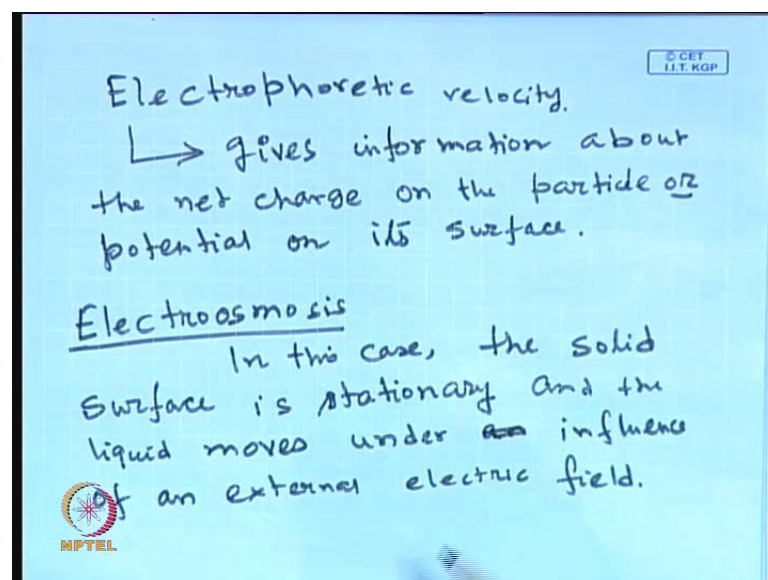 © CET
I.I.T. KGP
Electrophoretic velocity.
↳ gives information about
the net charge on the particle or
potential on its surface.
Electroosmosis
In this case, the solid
surface is stationary and the
liquid moves under influence
of an external electric field.
NPTEL